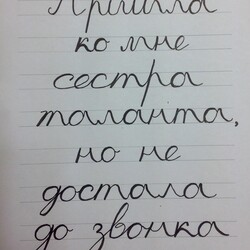 Пришла
ко мне
сестра
таланта,
но не
достала
до звонка